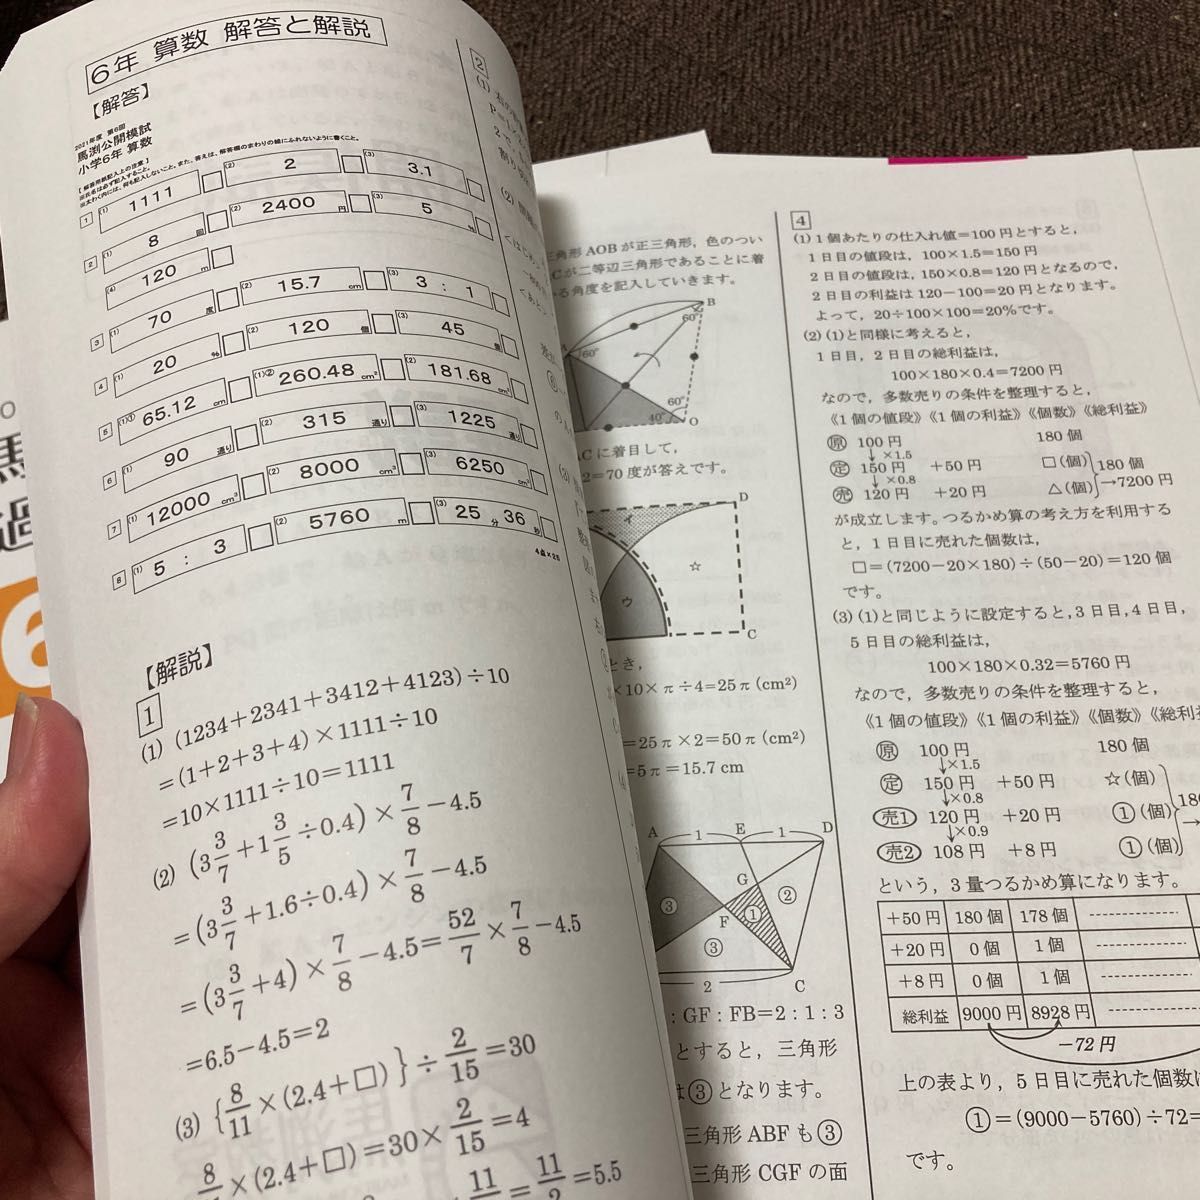 6年 算数 解答と解説
【解答】
2021年度 第6回
馬渕公開模試
小学6年 算数
【解答用紙記入上の注意】
1 (1) 1111 (2) 2 (3) 3.1
2 (1) 8 回 (2) 2400 円 (3) 5 %
(4) 120 m
3 (1) 70 度 (2) 15.7 cm (3) 3 : 1
4 (1) 20 % (2) 120 個 (3) 45 個
5 (1)① 65.12 cm (1)② 260.48 cm² (2) 181.68 cm²
6 (1) 90 通り (2) 315 通り (3) 1225 通り
7 (1) 12000 cm³ (2) 8000 cm³ (3) 6250 cm³
8 (1) 5 : 3 (2) 5760 m (3) 25 分 36 秒
4点×25
【解説】
1
(1) (1234+2341+3412+4123)÷10
=(1+2+3+4)×1111÷10
=10×1111÷10=1111
(2) (3 3/7+1 3/5÷0.4)×7/8−4.5
=(3 3/7+1.6÷0.4)×7/8−4.5
=(3 3/7+4)×7/8−4.5=52/7×7/8−4.5
=6.5−4.5=2
(3) {8/11×(2.4+□)}÷2/15=30
×(2.4+□)=30×2/15=4
11/2=5.5
2
(1)
(2)
角形AOBが正三角形，色のつい
Cが二等辺三角形であることに着
る角度を記入していきます。
B
60°
60°
60°
40°
O
Cに着目して，
2=70度が答えです。
D
イ
☆
ウ
C
とき，
×10×π÷4=25π(cm²)
=25π×2=50π(cm²)
=5π=15.7 cm
A 1 E 1 D
G
③ ① ②
F
③
2 C
：GF：FB=2：1：3
とすると，三角形
は③となります。
三角形ABFも③
三角形CGFの面
4
(1) 1個あたりの仕入れ値=100円とすると，
1日目の値段は，100×1.5=150円
2日目の値段は，150×0.8=120円となるので，
2日目の利益は120−100=20円となります。
よって，20÷100×100=20%です。
(2) (1)と同様に考えると，
1日目，2日目の総利益は，
100×180×0.4=7200円
なので，多数売りの条件を整理すると，
《1個の値段》《1個の利益》《個数》《総利益》
原 100円 180個
↓×1.5
定 150円 +50円 □(個)
↓×0.8
売 120円 +20円 △(個)
180個
→7200円
が成立します。つるかめ算の考え方を利用する
と，1日目に売れた個数は，
□=(7200−20×180)÷(50−20)=120個
です。
(3) (1)と同じように設定すると，3日目，4日目，
5日目の総利益は，
100×180×0.32=5760円
なので，多数売りの条件を整理すると，
《1個の値段》《1個の利益》《個数》《総利
原 100円 180個
↓×1.5
定 150円 +50円 ☆(個)
↓×0.8
売1 120円 +20円 ①(個)
↓×0.9
売2 108円 +8円 ①(個)
という，3量つるかめ算になります。
+50円 180個 178個
+20円 0個 1個
+8円 0個 1個
総利益 9000円 8928円
−72円
上の表より，5日目に売れた個数は
①=(9000−5760)÷72=
です。